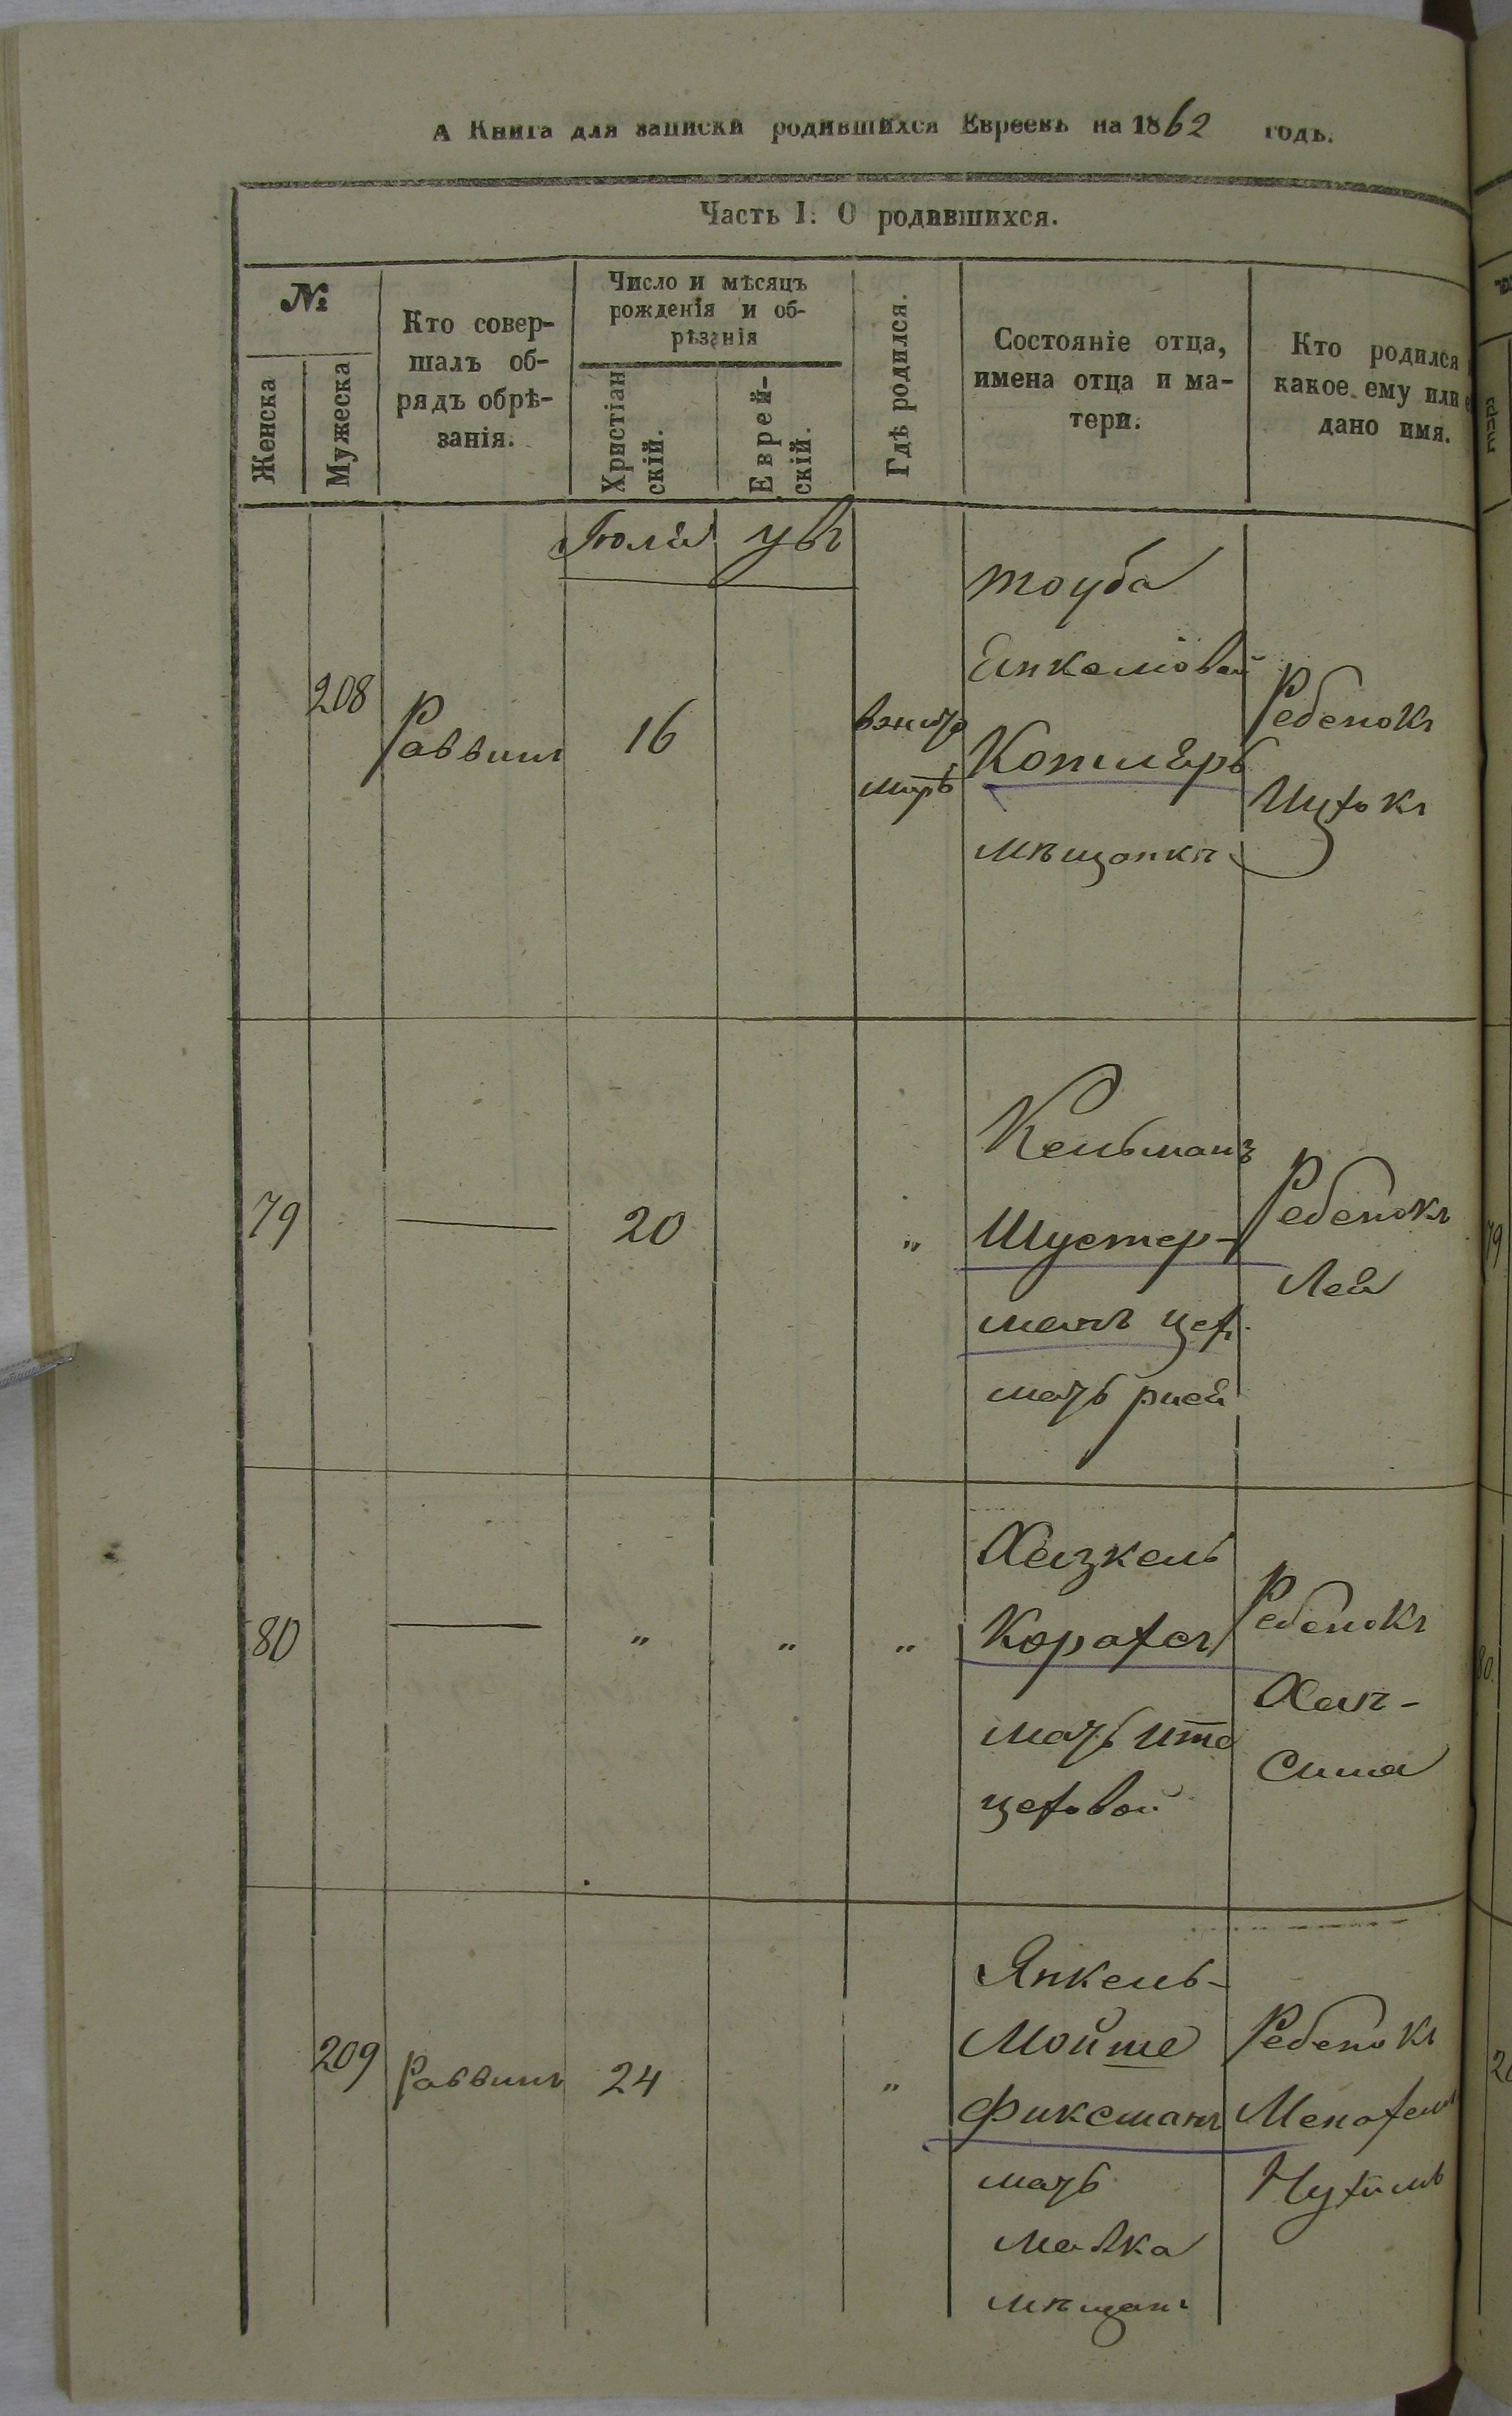 А Книга для записки родившихся Евреевъ на 1862 годъ.
Часть I. О родившихся.
№
Женска
Мужеска
Кто совер-
шалъ об-
рядъ обрѣ-
занія.
Число и мѣсяцъ
рожденія и об-
рѣзанія
Христіан
скій.
Еврей-
скій.
Гдѣ родился.
Состояніе отца,
имена отца и ма-
тери.
Кто родился
какое ему или
дано имя.
Іюля
208
Раввинъ
16
Тоуба
Котляръ
мѣщанка
Ребенокъ
Ицхокъ
79
20
"
Кельманъ
Шустер-
манъ цех.
мать
Ребенокъ
Лея
80
"
"
"
Хазкель
Корахъ
мать Ита
цеховой
Ребенокъ
Хая-
Сима
209
Раввинъ
24
"
Янкель-
Мойше
Фиксманъ
мать
Малка
мѣщанъ
Ребенокъ
Менахемъ
Нухимъ
79
80